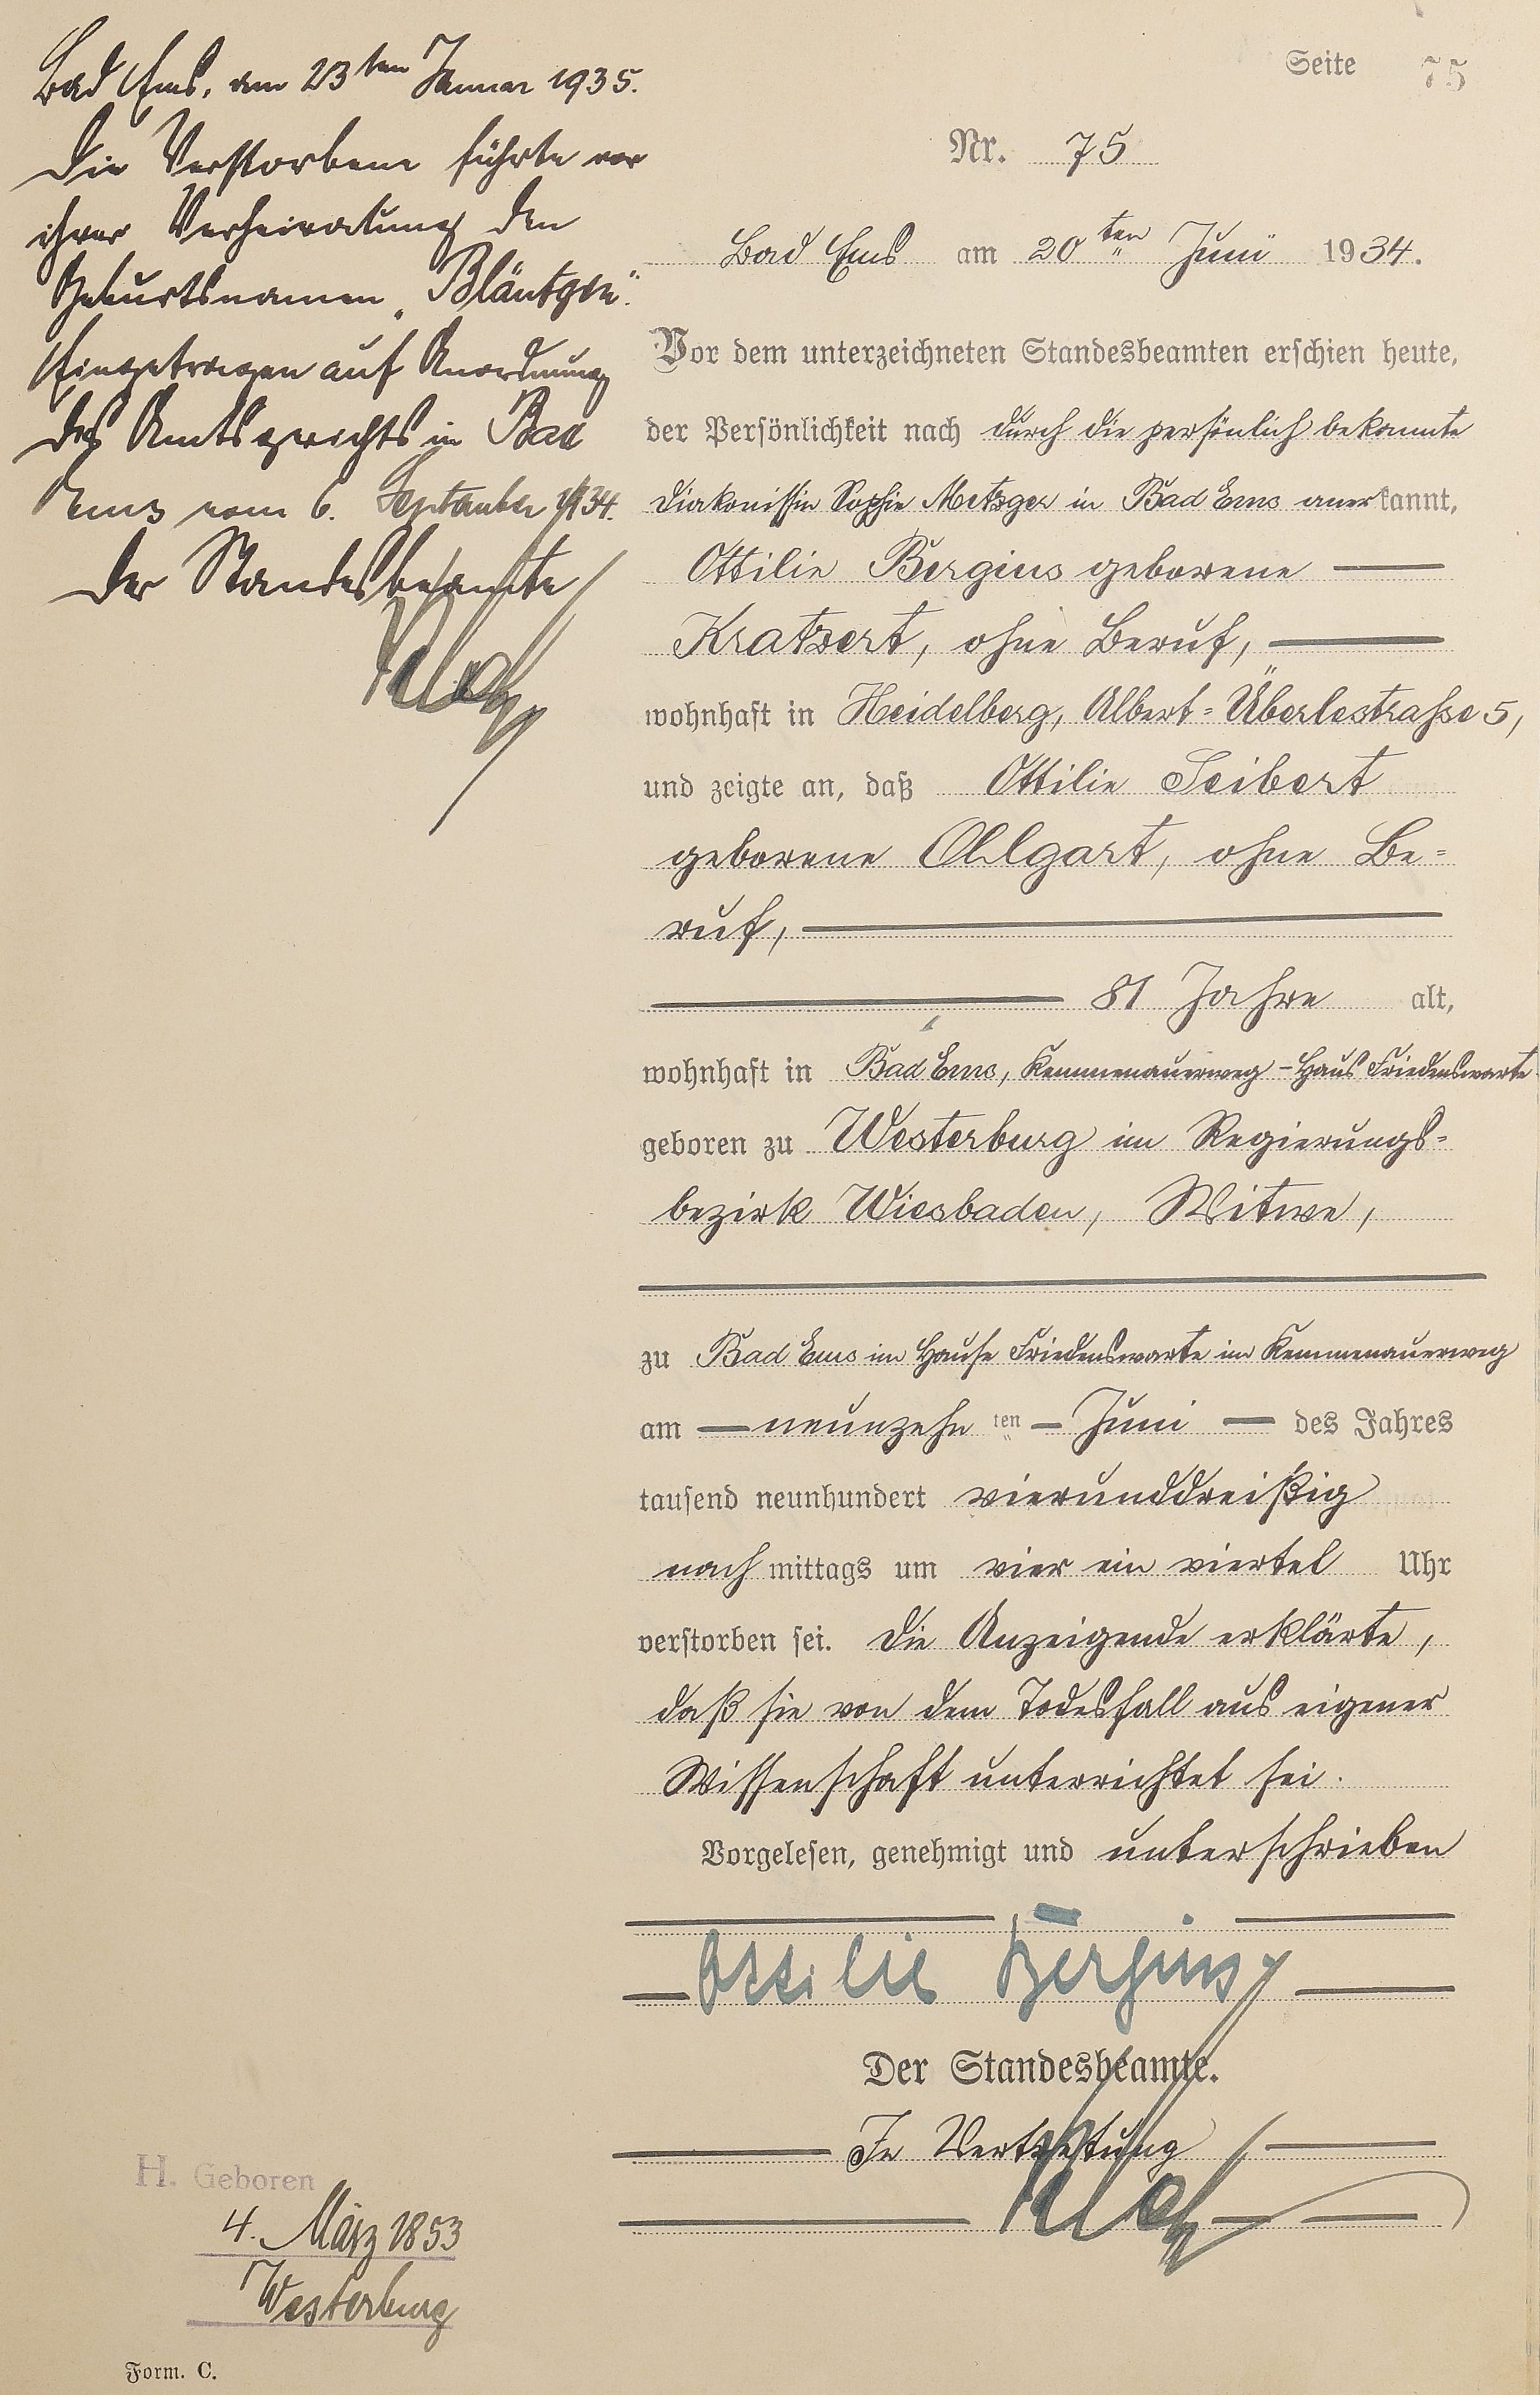 Seite 75
Nr. 75
Bad Ems am 20ten Juni 1934.
Vor dem unterzeichneten Standesbeamten erschien heute,
der Persönlichkeit nach durch die persönlich bekannte
Diakonissin Sophie Metzger in Bad Ems anerkannt,
Ottilie Bergius geborene
Kratzert, ohne Beruf,
wohnhaft in Heidelberg, Albert-Überlestrasse 5,
und zeigte an, daß Ottilie Seibert
geborene Ohlgart, ohne Be-
ruf,
81 Jahre alt,
wohnhaft in Bad Ems, Kemmenauerweg - Haus Friedenswarte
geboren zu Westerburg im Regierungs-
bezirk Wiesbaden, Witwe,
zu Bad Ems im Hause Friedenswarte im Kemmenauerweg
am neunzehnten Juni des Jahres
tausend neunhundert vierunddreißig
nachmittags um vier ein viertel Uhr
verstorben sei. Die Anzeigende erklärte,
daß sie von dem Todesfall aus eigener
Wissenschaft unterrichtet sei.
Vorgelesen, genehmigt und unterschrieben
Ottilie Bergius
Der Standesbeamte.
In Vertretung
Bad Ems, am 23ten Januar 1935.
Die Verstorbene führte vor
ihrer Verheiratung den
Geburtsnamen „Bläntgen“.
Eingetragen auf Anordnung
des Amtsgerichts in Bad
Ems vom 6. September 1934.
Der Standesbeamte
H. Geboren
4. März 1853
Westerburg
Form. C.